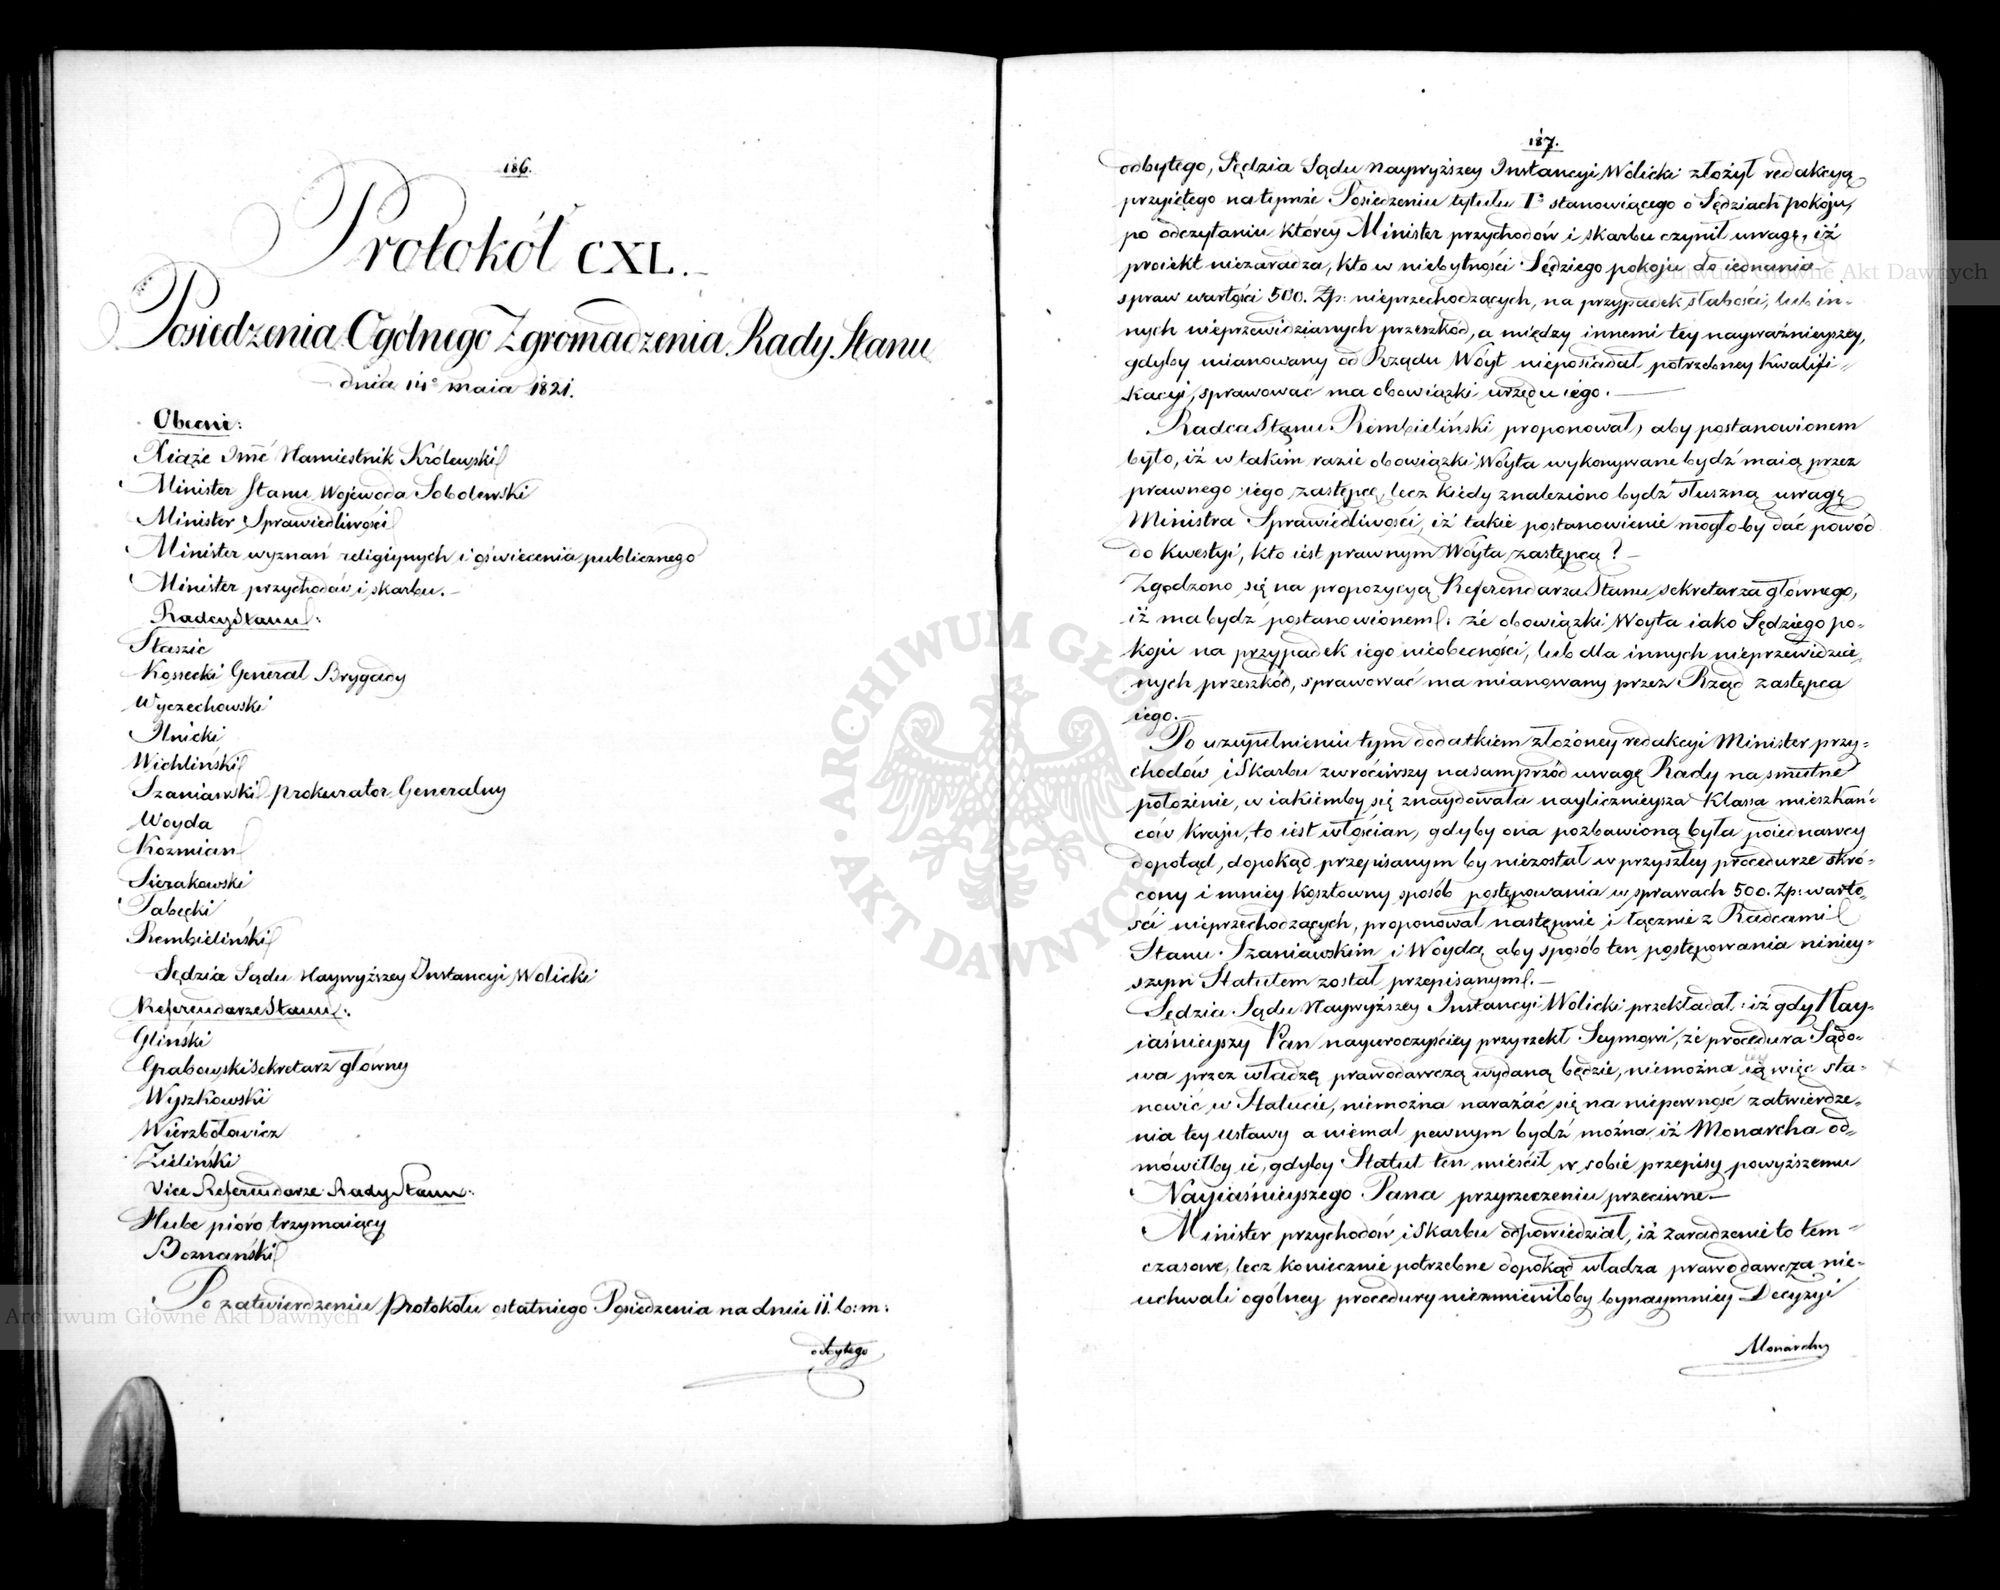 186.
Protokół CXL.
Posiedzenia Ogólnego Zgromadzenia Rady Stanu
dnia 14º maia 1821.
Obecni:
Xiąże Jmć Namiestnik Królewski
Minister Stanu Wojewoda Sobolewski
Minister Sprawiedliwości
Minister wyznań religiynych i oświecenia publicznego
Minister przychodów i skarbu.
Radcy Stanu:
Staszic
Kossecki Generał Brygady
Wyczechowski
Ilnicki
Wichliński
Szaniawski prokurator Generalny
Woyda
Kozmian
Sierakowski
Tabęcki
Rembieliński
Sędzia Sądu Naywyższey Instancyi Wolicki
Referendarze Stanu:
Gliński
Grabowski Sekretarz główny
Wyszkowski
Wierzbołowicz
Zieliński
Vice Referendarze Rady Stanu:
Hube pióro trzymaiący
Boznański
Po zatwierdzeniu protokołu ostatniego Posiedzenia na dniu 11. b: m:
odbytego
187.
odbytego, Sędzia Sądu Naywyższey Instancyi Wolicki złożył redakcyą
przyiętego na tymże Posiedzeniu tytułu Iº stanowiącego o Sędziach pokoju,
po odczytaniu którey Minister przychodów i skarbu czynił uwagę, iż
proiekt niezaradza, kto w niebytności Sędziego pokoju do iednania
spraw wartości 500. Zp: nieprzechodzących, na przypadek słabości, lub in-
nych nieprzewidzianych przeszkód, a między innemi tey nayważnieyszey,
gdyby mianowany od Rządu Wóyt nieposiadał potrzebney kwalifi-
kacyi, sprawować ma obowiązki urzędu iego.
Radca Stanu Rembieliński proponował, aby postanowionem
było, iż w takim razie obowiązki Wóyta wykonywane bydź maią przez
prawnego iego zastępcę, lecz kiedy znaleziono bydź słuszną uwagę
Ministra Sprawiedliwości, iż takie postanowienie mogłoby dać powód
do kwestyi, kto iest prawnym Wóyta zastępcą?
Zgodzono się na propozycyą Referendarza Stanu, sekretarza głównego,
iż ma bydź postanowionem: że obowiązki Woyta iako Sędziego po-
koju na przypadek iego nieobecności, lub dla innych nieprzewidzia-
nych przeszkód, sprawować ma mianowany przez Rząd zastępca
iego.
Po uzupełnieniu tym dodatkiem złożoney redakcyi Minister przy-
chodów i Skarbu zwróciwszy nasamprzód uwagę Rady na smutne
położenie, w iakiemby się znaydowała naylicznieysza klassa mieszkań-
ców kraju, to iest włościan, gdyby ona pozbawioną była poiednawcy
dopotąd, dopokąd przepisanym by niezostał w przyszłey procedurze skró-
cony i mniey kosztowny sposób postępowania w sprawach 500. Zp: warto-
ści nieprzechodzących, proponował następnie i łącznie z Radcami
Stanu Szaniawskim i Woydą, aby sposób ten postępowania niniey-
szym Statutem został przepisanym.
Sędzia Sądu Naywyższey Instancyi Wolicki przekładał: iż gdy Nay-
iaśnieyszy Pan nayuroczyściey przyrzekł Seymowi, że procedura Sądo-
wa przez władzę prawodawczą wydaną będzie, niemożna ią więc sta-
nowić w Statucie, niemożna narażać się na niepewność zatwierdze-
nia tey ustawy a niemal pewnym bydź można iż Monarcha od-
mówiłby ie, gdyby Statut ten mieścił w sobie przepisy powyższemu
Nayiaśnieyszego Pana przyrzeczeniu przeciwne.
Minister przychodów i Skarbu odpowiedział, iż zaradzenie to tem-
czasowe, lecz koniecznie potrzebne dopokąd władza prawodawcza nie-
uchwali ogólney procedury niezmieniłoby bynaymniey Decyzyi
Monarchy
ARCHIWUM GŁÓWNE AKT DAWNYCH
Archiwum Główne Akt Dawnych
Archiwum Główne Akt Dawnych